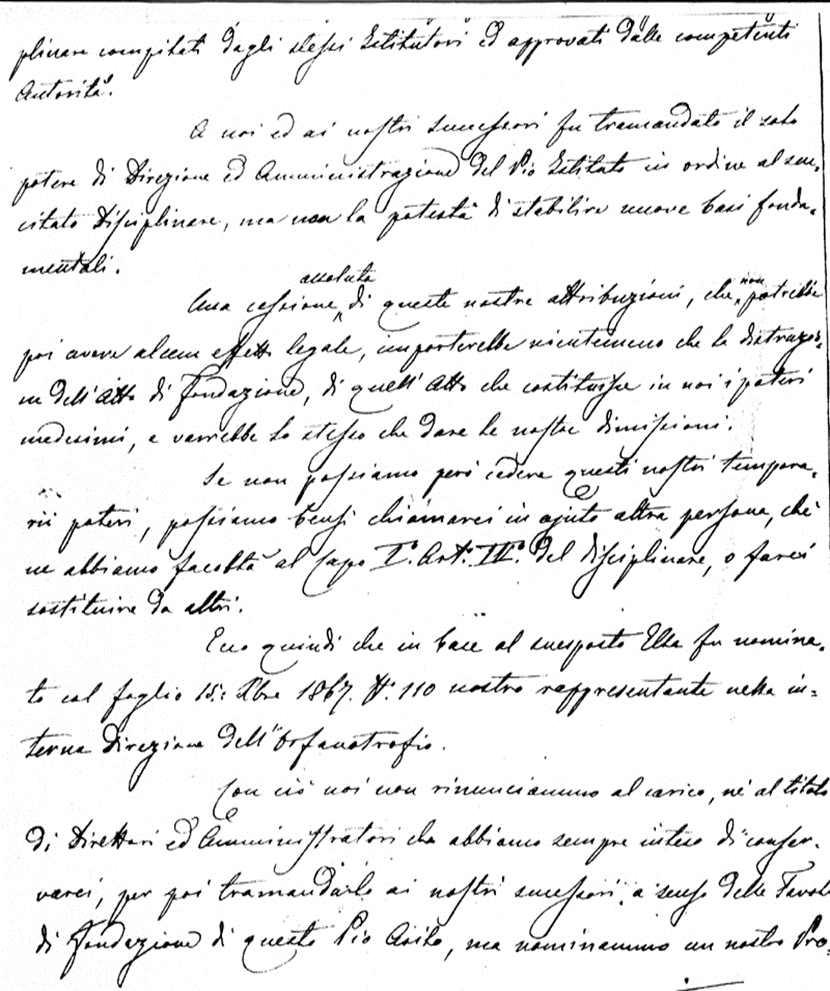 plinare compilati dagli stessi Istitutori ed approvati dalle competenti
Autorità.
A noi ed ai nostri successori fu tramandato il solo
potere di Direzione ed Amministrazione del Pio Istituto in ordine al suc-
citato Disciplinare, ma non la potestà di stabilire nuove basi fonda-
mentali.
Una cessione assoluta di queste nostre attribuzioni, che non potrebbe
poi avere alcun effetto legale, importerebbe nientemeno che la distruzio-
ne dell'Atto di fondazione, di quell'Atto che costituisce in noi i poteri
medesimi, e varrebbe lo stesso che dare le nostre dimissioni.
Se non possiamo però cedere questi nostri tempora-
rii poteri, possiamo bensì chiamarci in ajuto altre persone, chè
ne abbiamo facoltà al Capo I°. Art°. III°. del disciplinare, o farci
sostituire da altri.
Ecco quindi che in base al suesposto Ella fu nomina-
to col foglio 15: Xbre 1867. N°. 110 nostro rappresentante nella in-
terna Direzione dell'Orfanotrofio.
Con ciò noi non rinunciammo al carico, nè al titolo
di Direttori ed Amministratori che abbiamo sempre inteso di conser-
varci, per poi tramandarlo ai nostri successori a senso delle Tavole
di fondazione di questo Pio Asilo, ma nominammo un nostro Pro-